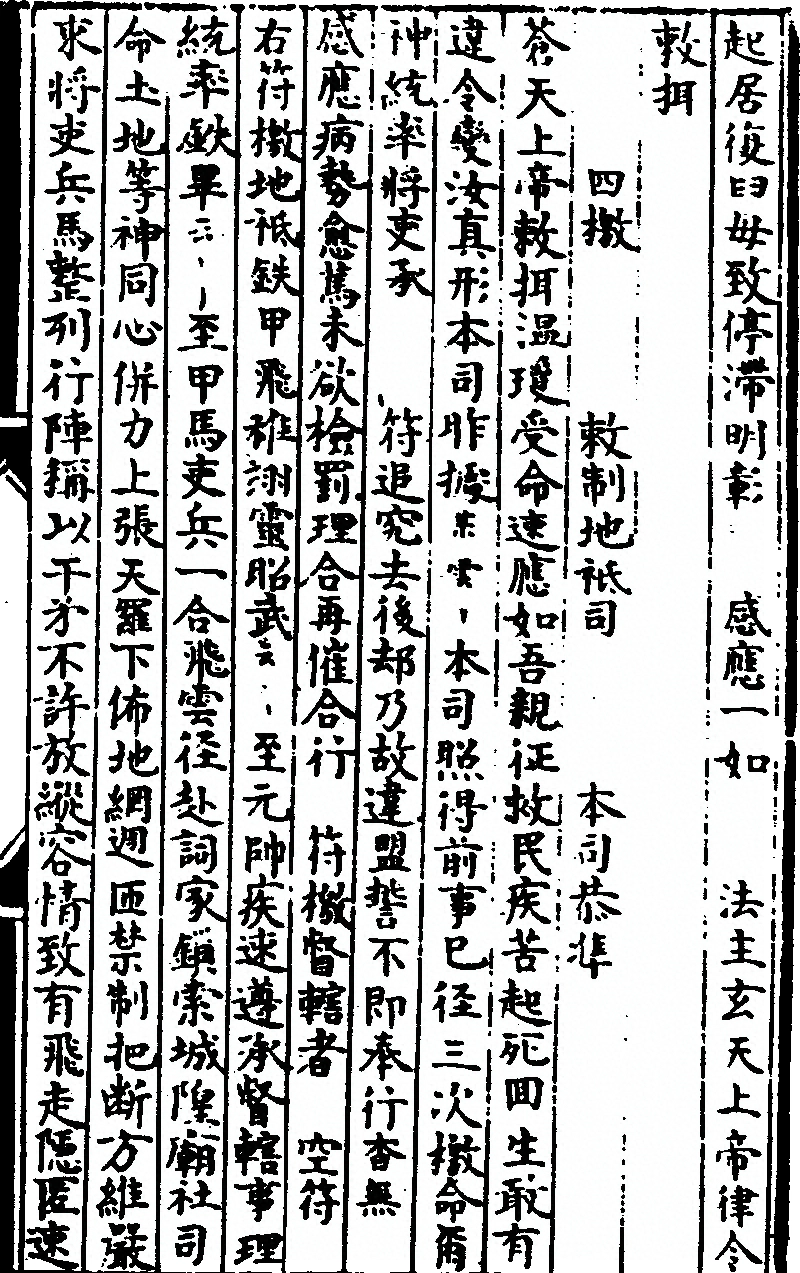 起居復旧毋致停滯明彰　感應一如　法主玄天上帝律令
敕拜
四檄　　敕制地祇司　　本司恭準
蒼天上帝敕拜溫瓊受命速應如吾親征救民疾苦起死回生敢有
違令變汝真形本司昨據某云〻本司照得前事已径三次檄命爾
神統率將吏承　符追究去後却乃故違盟誓不即奉行杳無
感應病勢愈篤未欲檢罰理合再催合行　符檄督轄者　空符
右符檄地祇鉄甲飛雄翊靈昭武云〻至元帥疾速遵承督轄事理
統率鉄畢云〻至甲馬吏兵一合飛雲径赴詞家鎖索城隍廟社司
命土地等神同心併力上張天羅下佈地網週匝禁制把断方維嚴
求將吏兵馬整列行陣搁以干矛不許放縱容情致有飛走隱匿速